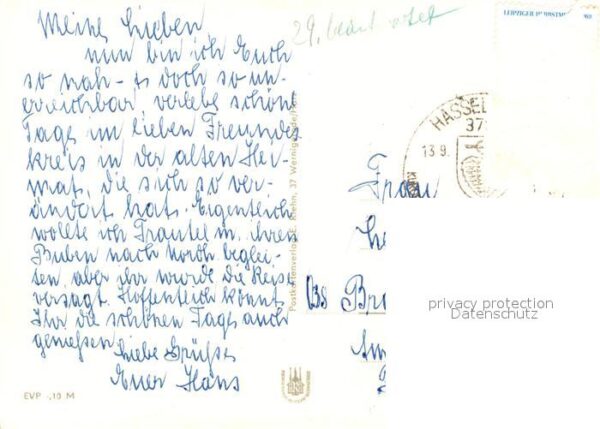 Meine Lieben
nun bin ich Euch
so nah – u. doch so un-
erreichbar, verlebe schöne
Tage im lieben Freundes
kreis in der alten Hei-
mat, die sich so ver-
ändert hat. Eigentlich
wollte ich Trautel m. ihren
Buben nach nach beglei-
ten, aber ihr wurde die Reise
versagt. Hoffentlich könnt
Ihr die schönen Tage auch
genießen
Liebe Grüße
Euer Hans
EVP -,10 M
29. beantwortet
37 Wernigerode
LEIPZIGER
HASSEL
37
13.9.
Frau
Bro
privacy protection
Datenschutz